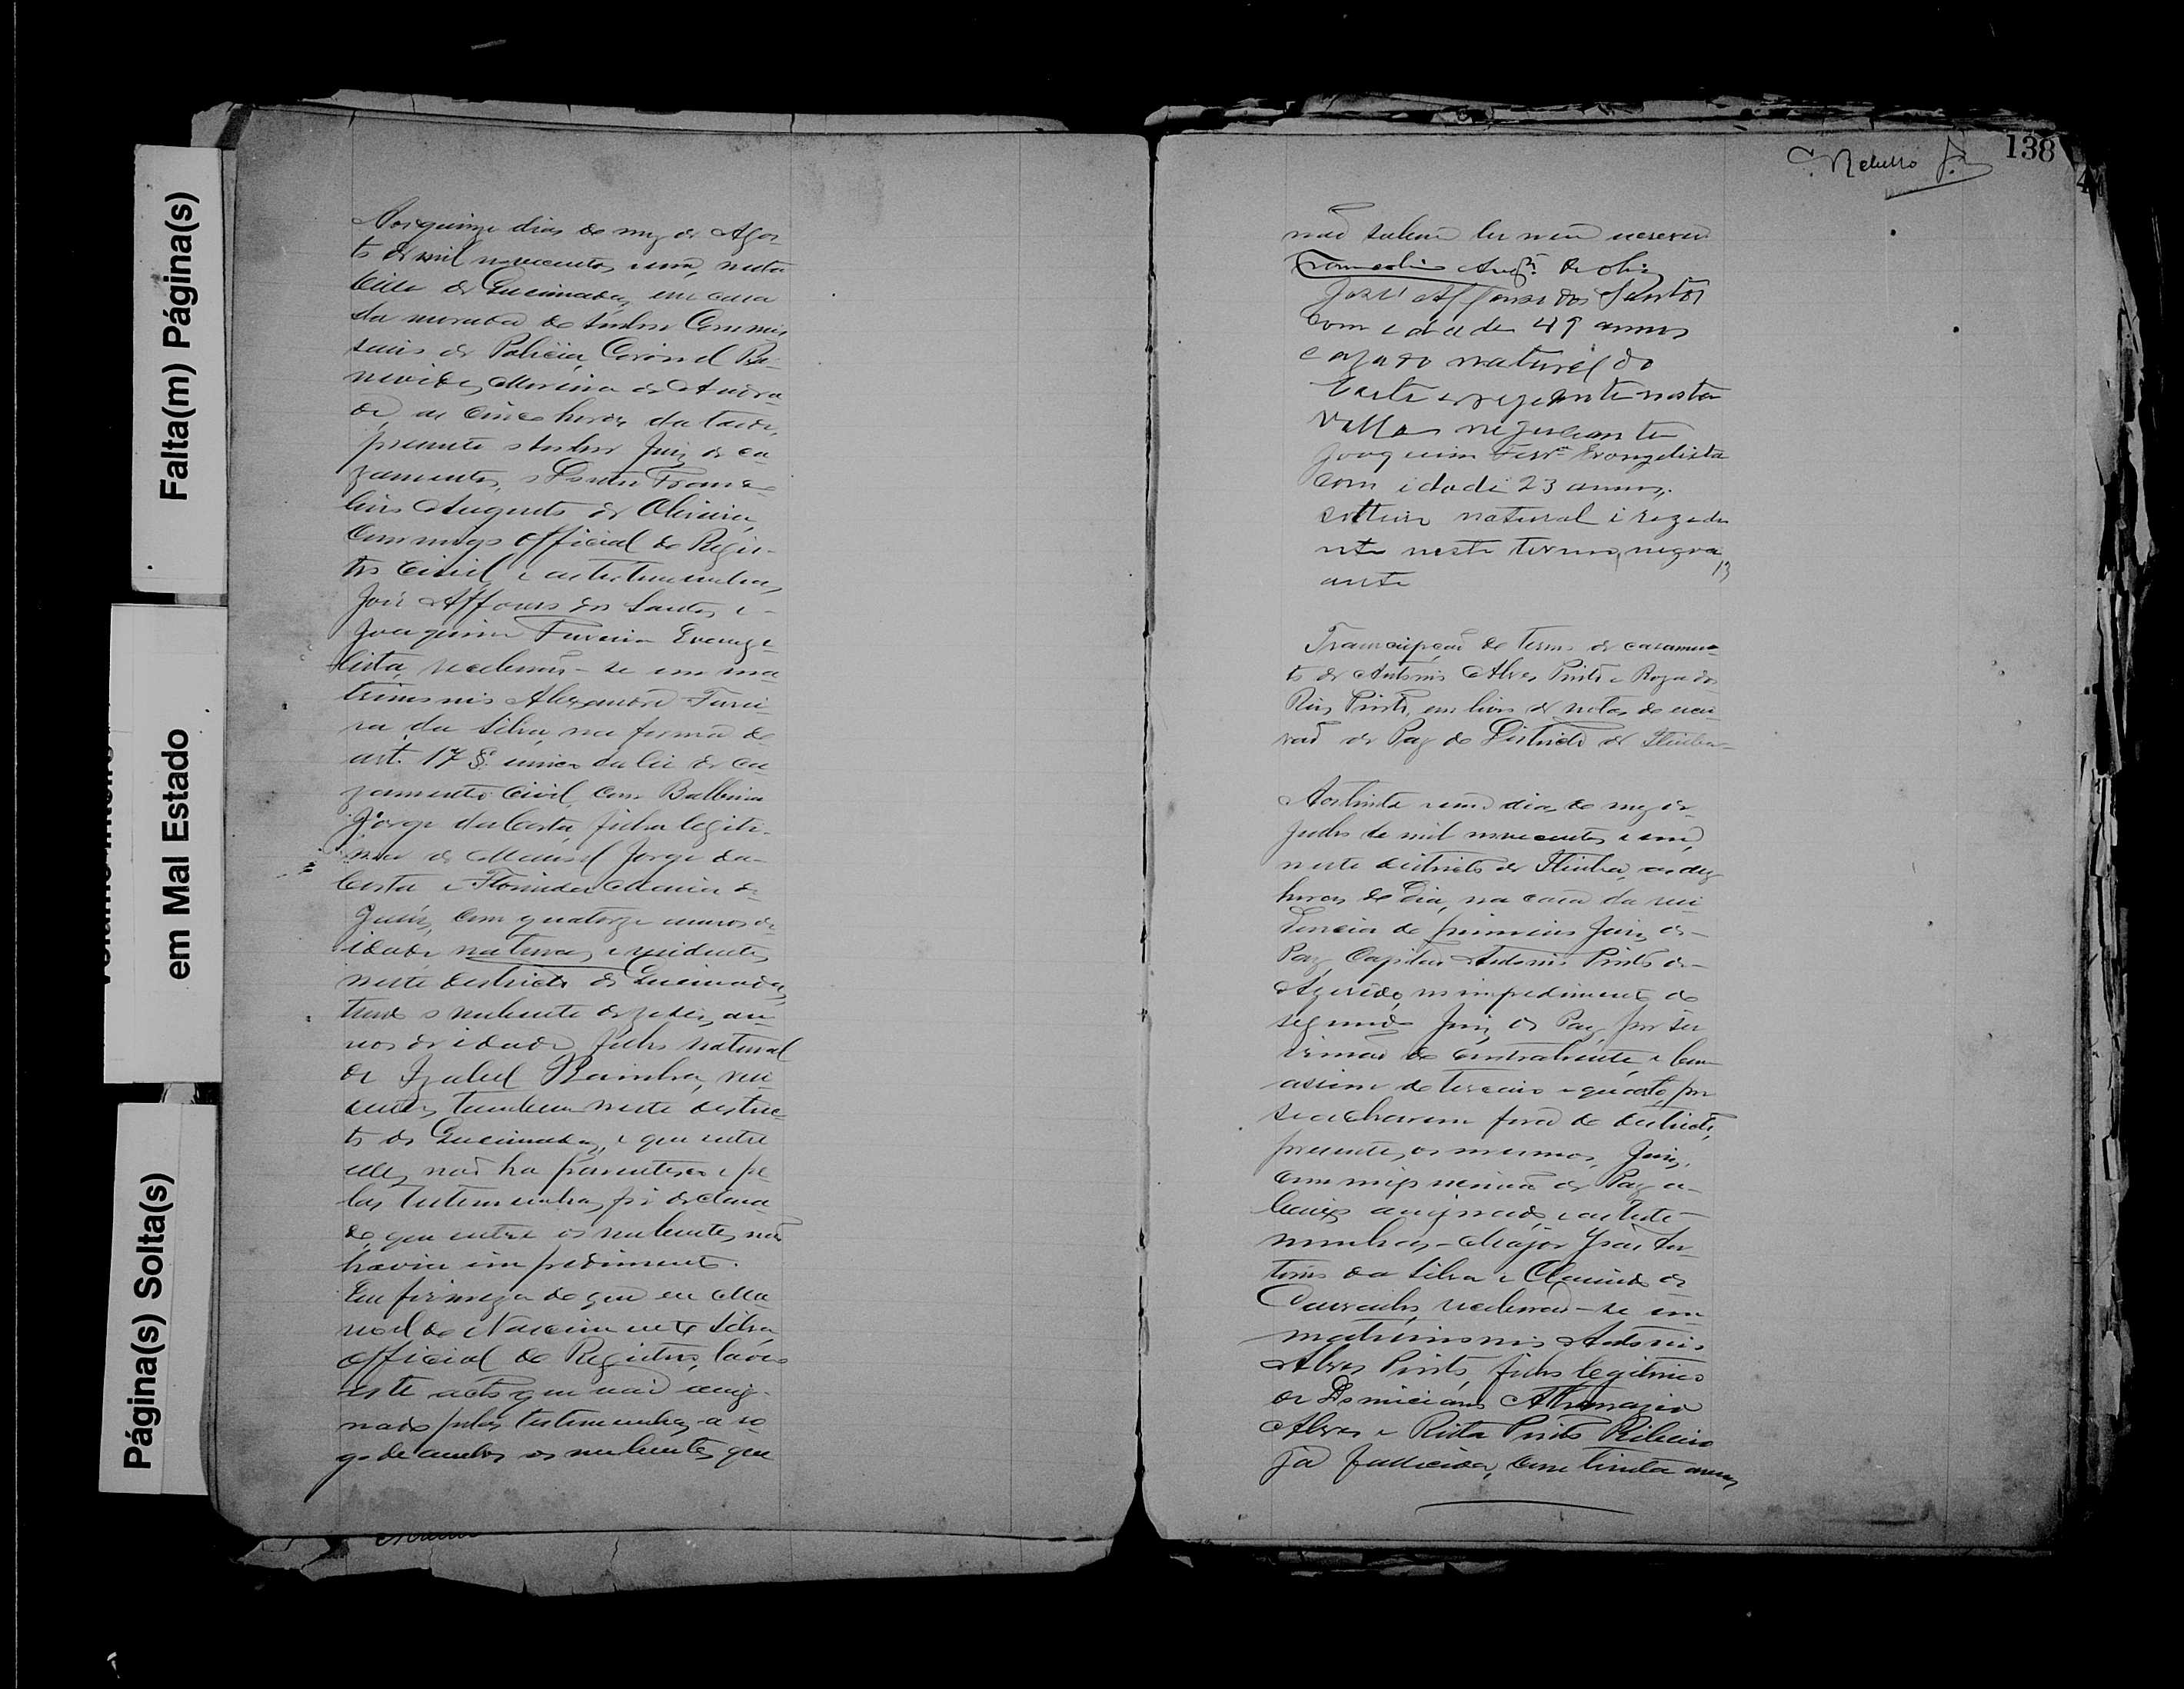 Falta(m) Página(s)
em Mal Estado
Página(s) Solta(s)
Aos quinze dias do mez de Agos-
to de mil novecentos e um, nesta
Villa de Queimadas, em casa
da morada do Senhor Commis-
sario de Policia, Coronel Be-
nevides Moreira de Andra-
de, as cinco horas da tarde,
presente o Senhor Juiz de ca-
zamentos, Doutor Frances-
lino Augusto de Oliveira,
commigo official do Regis-
tro Civil e as testemunhas,
José Affonso dos Santos e
Joaquim Ferreira Evange-
lista, receberão-se em ma-
trimonio Alexandre Ferrei-
ra da Silva, na forma do
art. 17 § unico da lei do ca-
zamento civil, com Balbina
Jorge da Costa, filha legiti-
ma de Manoel Jorge da
Costa e Florinda Maria de
Jesus, com quatorze annos de
idade, naturaes e residentes
neste districto de Queimadas,
tendo o nubente dezeseis an-
nos de idade, filho natural
de Izabel
dentes tambem neste distric-
to de Queimadas, e que entre
elles não ha parentesco e pe-
las testemunhas foi declara-
do que entre os nubentes não
havia impedimento.
Em firmeza do que eu Ma-
noel do Nascimento Silva,
official do Registro, lavrei
este acto que vai assig-
nado pelas testemunhas a ro-
go de ambos os nubentes que
138
não sabem ler nem escrever
Francelino Augto de Olivª
José Affonso dos Santos
com idade 49 annos
cazado natural do
este e rezidente nesta
Villa negociante
Joaquim Ferrª Evangelista
com idade 23 annos,
solteiro natural i rezede
nte neste termo, negoci
ante
Transcripção do termo de casamen-
to de Antonio Alves Pinto e Roza dos
Reis Pinto, em livro de notas do escri-
vão de Paz do Districto de Itiuba-
Aos trinta e um dias do mez de
Julho de mil novecentos e um,
neste districto de Itiuba, as dez
horas do dia, na casa da resi-
dencia do primeiro Juiz de
Paz Capitão Antonio Pinto de
Azevedo, no impedimento do
segundo Juiz de Paz, por ser
irmão do contrahente, e bem
assim do terceiro e quarto, por
se acharem fora do districto,
presente, os mesmos, Juiz,
commigo escrivão de Paz a-
baixo assignado, e as teste-
munhas - Major José An-
tonio da Silva e Claudio de
Carvalho, receberão-se em
matrimonio Antonio
Alves Pinto, filho legitimo
de Domiciano Athanazio
Alves e Rita Pinto Ribeiro
já fallecida, com trinta annos,